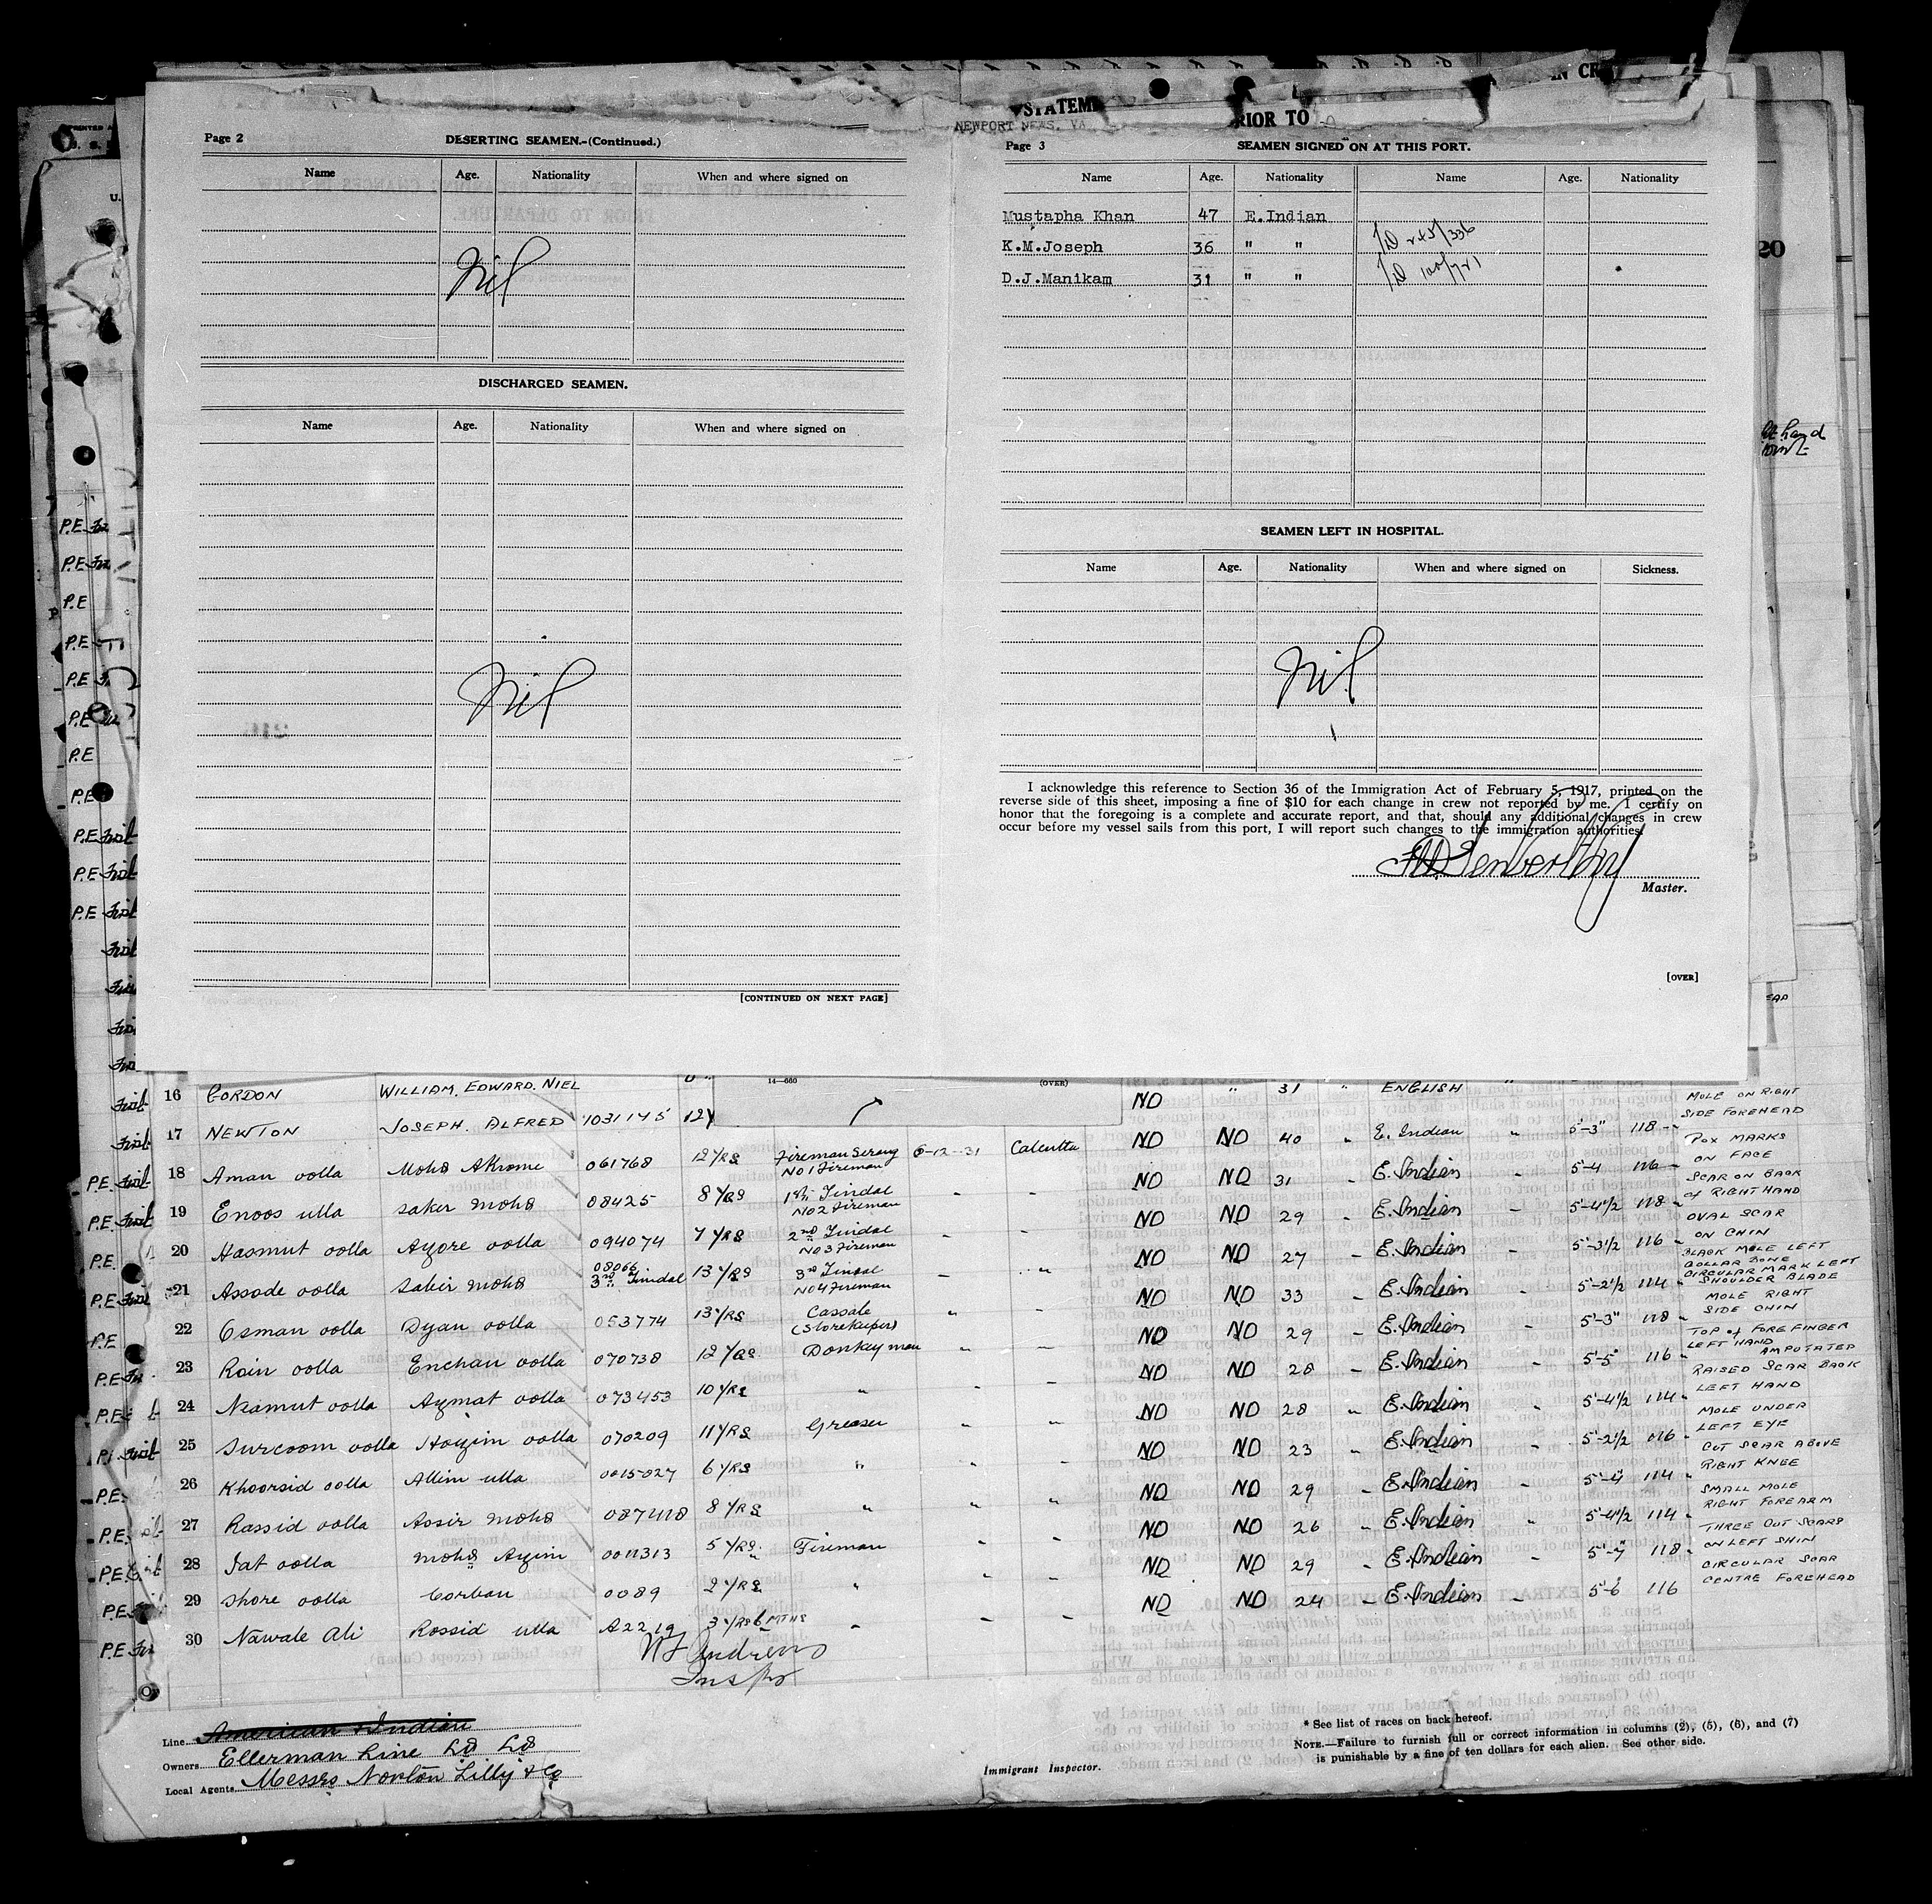 IN CR
STATEME
NEWPORT NEWS, VA.
RIOR TO
Page 2
DESERTING SEAMEN.-(Continued.)
Name Age. Nationality When and where signed on
Nil
DISCHARGED SEAMEN.
Name Age. Nationality When and where signed on
Nil
[CONTINUED ON NEXT PAGE]
Page 3
SEAMEN SIGNED ON AT THIS PORT.
Name Age. Nationality Name Age. Nationality
Mustapha Khan 47 E.Indian
K.M.Joseph 36 " "
D.J.Manikam 31 " "
SEAMEN LEFT IN HOSPITAL.
Name Age. Nationality When and where signed on Sickness.
Nil
I acknowledge this reference to Section 36 of the Immigration Act of February 5, 1917, printed on the
reverse side of this sheet, imposing a fine of $10 for each change in crew not reported by me. I certify on
honor that the foregoing is a complete and accurate report, and that, should any additional changes in crew
occur before my vessel sails from this port, I will report such changes to the immigration authorities.
Master.
[OVER]
20
14—660
(OVER)
16 GORDON WILLIAM. EDWARD. NIEL NO " 31 " ENGLISH "
17 NEWTON JOSEPH. ALFRED 1031145 12Y NO NO 40 " E. Indian " 5'-3" 118 MOLE ON RIGHT SIDE FOREHEAD
P.E. 18 Aman oolla Mohd Akrome 061768 12 YRS Fireman Serang No 1 Fireman 6-12-31 Calcutta NO NO 31 " E. Indian 5'-4 116 POX MARKS ON FACE
P.E. 19 Enoos ulla Saker Mohd 08425 8 YRS 1st Tindal No 2 Fireman NO NO 29 E. Indian 5'-4 1/2 118 SCAR ON BACK of RIGHT HAND
P.E. 20 Hasmut oolla Ayore oolla 094074 7 YRS 2nd Tindal No 3 Fireman NO NO 27 E. Indian 5'-3 1/2 116 OVAL SCAR ON CHIN
P.E. 21 Assode oolla Sakir Mohd 08066 3rd Tindal 13 YRS 3rd Tindal No 4 Fireman NO NO 33 E. Indian 5'-2 1/2 114 BLACK MOLE LEFT COLLAR BONE CIRCULAR MARK LEFT SHOULDER BLADE
P.E. 22 Osman oolla Dyan oolla 053774 13 YRS Cassab (Storekeeper) NO NO 29 E. Indian 5'-3" 118 MOLE RIGHT SIDE CHIN
P.E. 23 Roin oolla Enchan oolla 070738 12 YRS Donkeyman NO NO 28 E. Indian 5'-5 116 TOP of FOREFINGER LEFT HAND AMPUTATED
P.E. 24 Neamut oolla Aymat oolla 073453 10 YRS " NO NO 28 E. Indian 5'-4 1/2 114 RAISED SCAR BACK LEFT HAND
25 Surcoom oolla Hoyim oolla 070209 11 YRS Greaser NO NO 23 E. Indian 5'-2 1/2 116 MOLE UNDER LEFT EYE
P.E. 26 Khoorsid oolla Allim ulla 0015027 6 YRS " NO NO 29 E. Indian 5'-4 114 CUT SCAR ABOVE RIGHT KNEE
P.E. 27 Rassid oolla Aosir Mohd 8 YRS " NO NO 26 E. Indian 5'-4 1/2 114 SMALL MOLE RIGHT FOREARM
P.E. 28 Jat oolla Mohd Ayim 0011313 5 YRS Fireman NO NO 29 E. Indian 5'-7 118 THREE CUT SCARS ON LEFT SHIN
P.E. 29 Shore oolla Corban 0089 2 YRS " NO NO 24 E. Indian 5'-6 116 CIRCULAR SCAR CENTRE FOREHEAD
P.E. 30 Nawab Ali Rossid ulla A2219 3 YRS 6 MTHS "
Andrews
Line American & Indian
Owners Ellerman Line Ld Ld
Local Agents Messrs Norton Lilly & Co
Immigrant Inspector.
* See list of races on back hereof.
NOTE.—Failure to furnish full or correct information in columns (2), (5), (6), and (7)
is punishable by a fine of ten dollars for each alien. See other side.